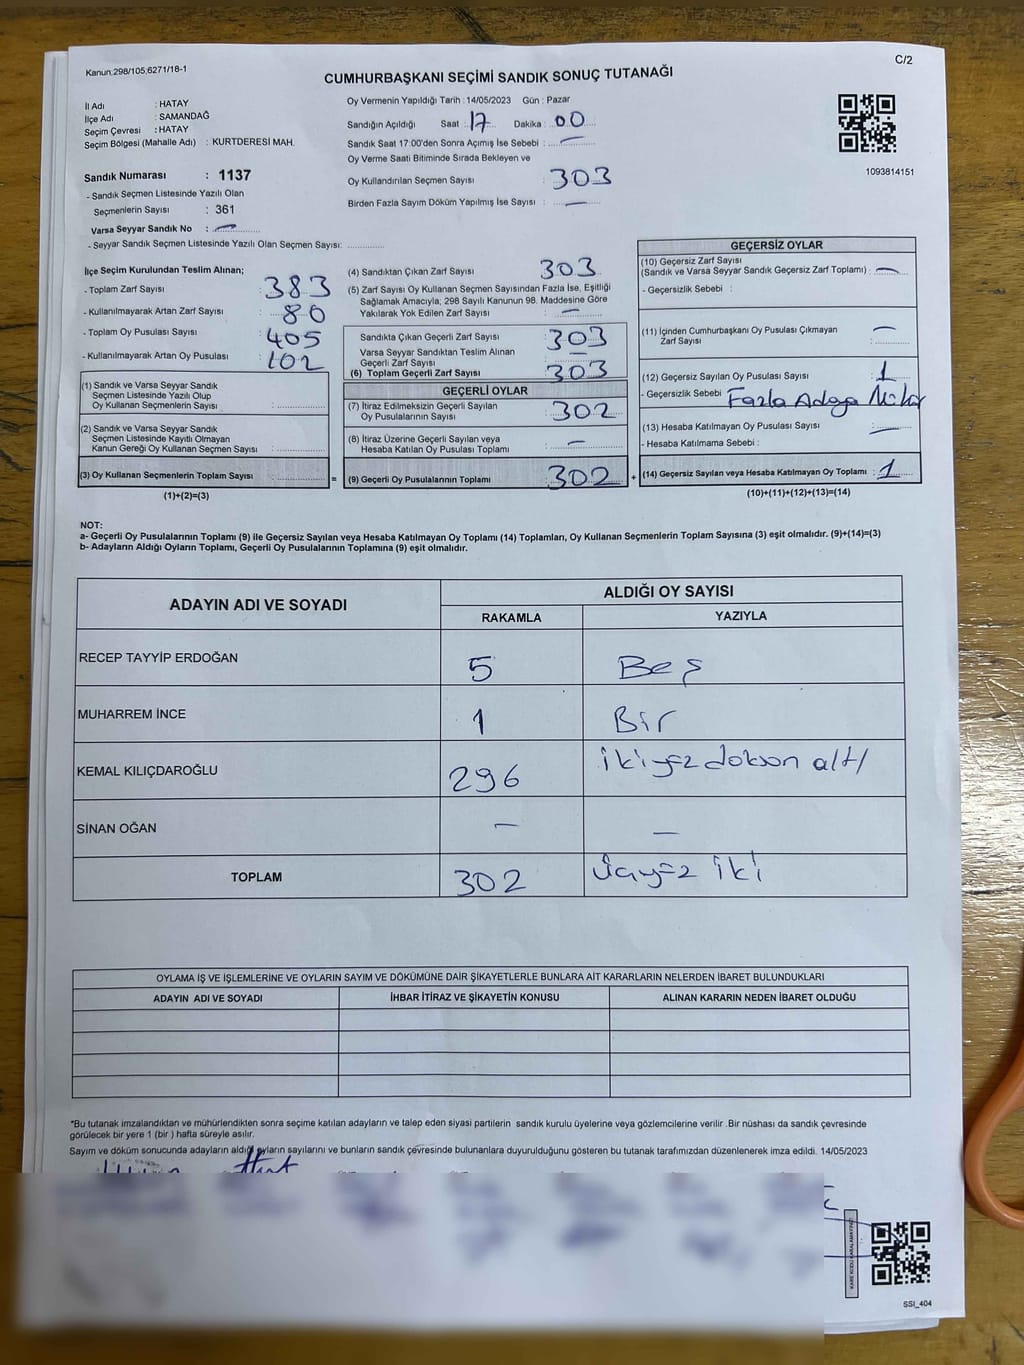 Kanun:298/105;6271/18-1
C/2
CUMHURBAŞKANI SEÇİMİ SANDIK SONUÇ TUTANAĞI
İl Adı : HATAY
İlçe Adı : SAMANDAĞ
Seçim Çevresi : HATAY
Seçim Bölgesi (Mahalle Adı) : KURTDERESİ MAH.
Sandık Numarası : 1137
- Sandık Seçmen Listesinde Yazılı Olan
Seçmenlerin Sayısı : 361
Varsa Seyyar Sandık No : —
- Seyyar Sandık Seçmen Listesinde Yazılı Olan Seçmen Sayısı:
Oy Vermenin Yapıldığı Tarih : 14/05/2023 Gün : Pazar
Sandığın Açıldığı Saat : 17 Dakika : 00
Sandık Saat 17:00'den Sonra Açımış İse Sebebi : —
Oy Verme Saati Bitiminde Sırada Bekleyen ve
Oy Kullandırılan Seçmen Sayısı : 303
Birden Fazla Sayım Döküm Yapılmış İse Sayısı : —
1093814151
İlçe Seçim Kurulundan Teslim Alınan;
- Toplam Zarf Sayısı : 383
- Kullanılmayarak Artan Zarf Sayısı : 80
- Toplam Oy Pusulası Sayısı : 405
- Kullanılmayarak Artan Oy Pusulası : 102
(1) Sandık ve Varsa Seyyar Sandık
Seçmen Listesinde Yazılı Olup
Oy Kullanan Seçmenlerin Sayısı :
(2) Sandık ve Varsa Seyyar Sandık
Seçmen Listesinde Kayıtlı Olmayan
Kanun Gereği Oy Kullanan Seçmen Sayısı :
(3) Oy Kullanan Seçmenlerin Toplam Sayısı :
(1)+(2)=(3)
(4) Sandıktan Çıkan Zarf Sayısı : 303
(5) Zarf Sayısı Oy Kullanan Seçmen Sayısından Fazla İse, Eşitliği
Sağlamak Amacıyla; 298 Sayılı Kanunun 98. Maddesine Göre
Yakılarak Yok Edilen Zarf Sayısı : —
Sandıkta Çıkan Geçerli Zarf Sayısı : 303
Varsa Seyyar Sandıktan Teslim Alınan
Geçerli Zarf Sayısı : —
(6) Toplam Geçerli Zarf Sayısı : 303
GEÇERLİ OYLAR
(7) İtiraz Edilmeksizin Geçerli Sayılan
Oy Pusulalarının Sayısı : 302
(8) İtiraz Üzerine Geçerli Sayılan veya
Hesaba Katılan Oy Pusulası Toplamı : —
= (9) Geçerli Oy Pusulalarının Toplamı : 302
GEÇERSİZ OYLAR
(10) Geçersiz Zarf Sayısı
(Sandık ve Varsa Seyyar Sandık Geçersiz Zarf Toplamı) : —
- Geçersizlik Sebebi :
(11) İçinden Cumhurbaşkanı Oy Pusulası Çıkmayan
Zarf Sayısı : —
(12) Geçersiz Sayılan Oy Pusulası Sayısı : 1
- Geçersizlik Sebebi : Fazla Adaya Mühür
(13) Hesaba Katılmayan Oy Pusulası Sayısı : —
- Hesaba Katılmama Sebebi :
+ (14) Geçersiz Sayılan veya Hesaba Katılmayan Oy Toplamı : 1
(10)+(11)+(12)+(13)=(14)
NOT:
a- Geçerli Oy Pusulalarının Toplamı (9) ile Geçersiz Sayılan veya Hesaba Katılmayan Oy Toplamı (14) Toplamları, Oy Kullanan Seçmenlerin Toplam Sayısına (3) eşit olmalıdır. (9)+(14)=(3)
b- Adayların Aldığı Oyların Toplamı, Geçerli Oy Pusulalarının Toplamına (9) eşit olmalıdır.
ADAYIN ADI VE SOYADI
ALDIĞI OY SAYISI
RAKAMLA YAZIYLA
RECEP TAYYİP ERDOĞAN 5 Beş
MUHARREM İNCE 1 Bir
KEMAL KILIÇDAROĞLU 296 ikiyüz dokson altı
SİNAN OĞAN — —
TOPLAM 302 üçyüz iki
OYLAMA İŞ VE İŞLEMLERİNE VE OYLARIN SAYIM VE DÖKÜMÜNE DAİR ŞİKAYETLERLE BUNLARA AİT KARARLARIN NELERDEN İBARET BULUNDUKLARI
ADAYIN ADI VE SOYADI İHBAR İTİRAZ VE ŞİKAYETİN KONUSU ALINAN KARARIN NEDEN İBARET OLDUĞU
*Bu tutanak imzalandıktan ve mühürlendikten sonra seçime katılan adayların ve talep eden siyasi partilerin sandık kurulu üyelerine veya gözlemcilerine verilir .Bir nüshası da sandık çevresinde
görülecek bir yere 1 (bir ) hafta süreyle asılır.
Sayım ve döküm sonucunda adayların aldığı oyların sayılarını ve bunların sandık çevresinde bulunanlara duyurulduğunu gösteren bu tutanak tarafımızdan düzenlenerek imza edildi. 14/05/2023
KARE KODU KARALAMAYINIZ!
SSI_404